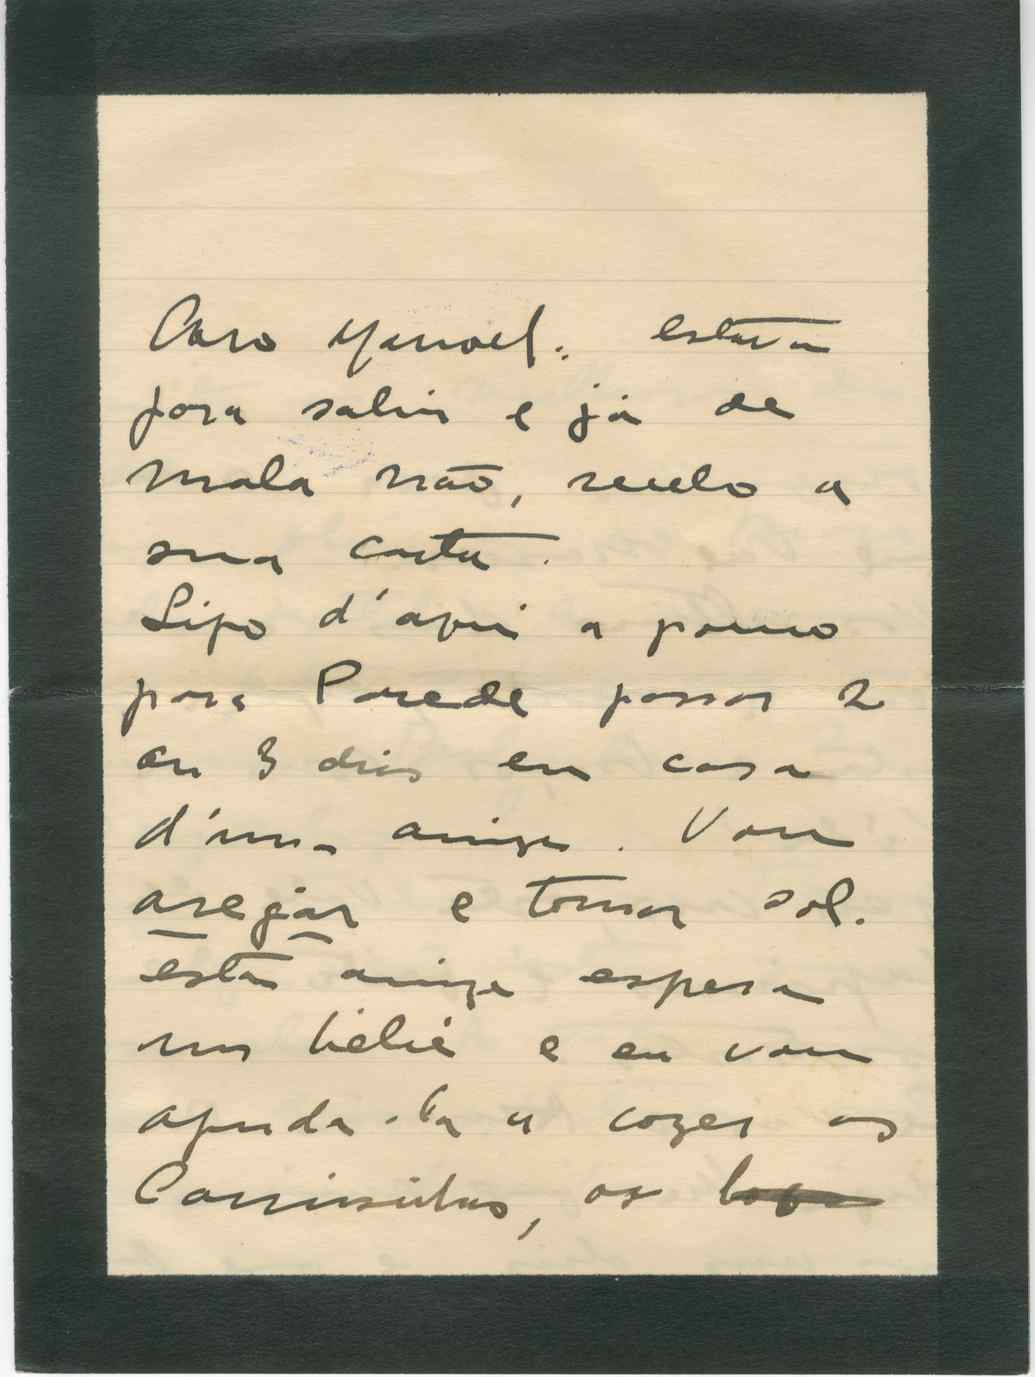 Caro Manoel: estava
para sahir e já de
mala não, recebo a
sua carta.
Sigo d'aqui a pouco
para Parede passar 2
ou 3 dias em casa
d'uma amiga. Vou
arejar e tomar sol.
esta amiga espera
um bébé e eu vou
ajuda-la a cozer as
Camisinhas, os